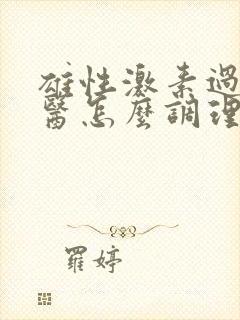 雄性激素過
醫怎麼調理
羅婷